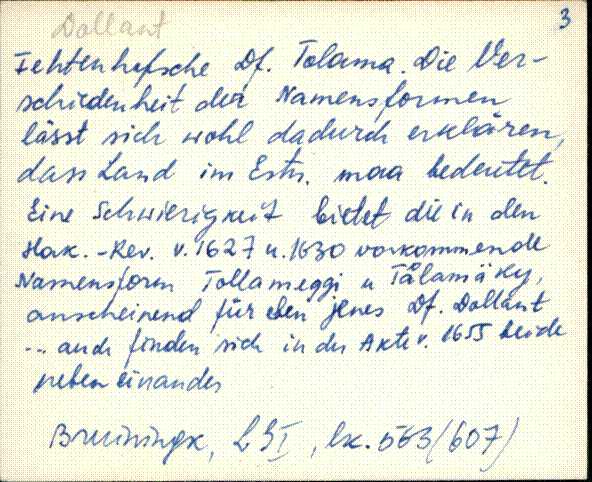 Dollant
3
Fehtenhofsche Df. Tolama. Die Ver-
schiedenheit der Namensformen
lässt sich wohl dadurch erklären,
dass Land im Estn. maa bedeutet.
Eine Schwierigkeit bietet die in den
Hak.-Rev. v. 1627 u. 1630 vorkommende
Namensform Tollameggi u Tålamäky,
anscheinend für eben jenes Df. Dollant
... auch finden sich in der Akte v. 1655 beide
neben einander
Bruiningk, LGI, lk. 563 (607)